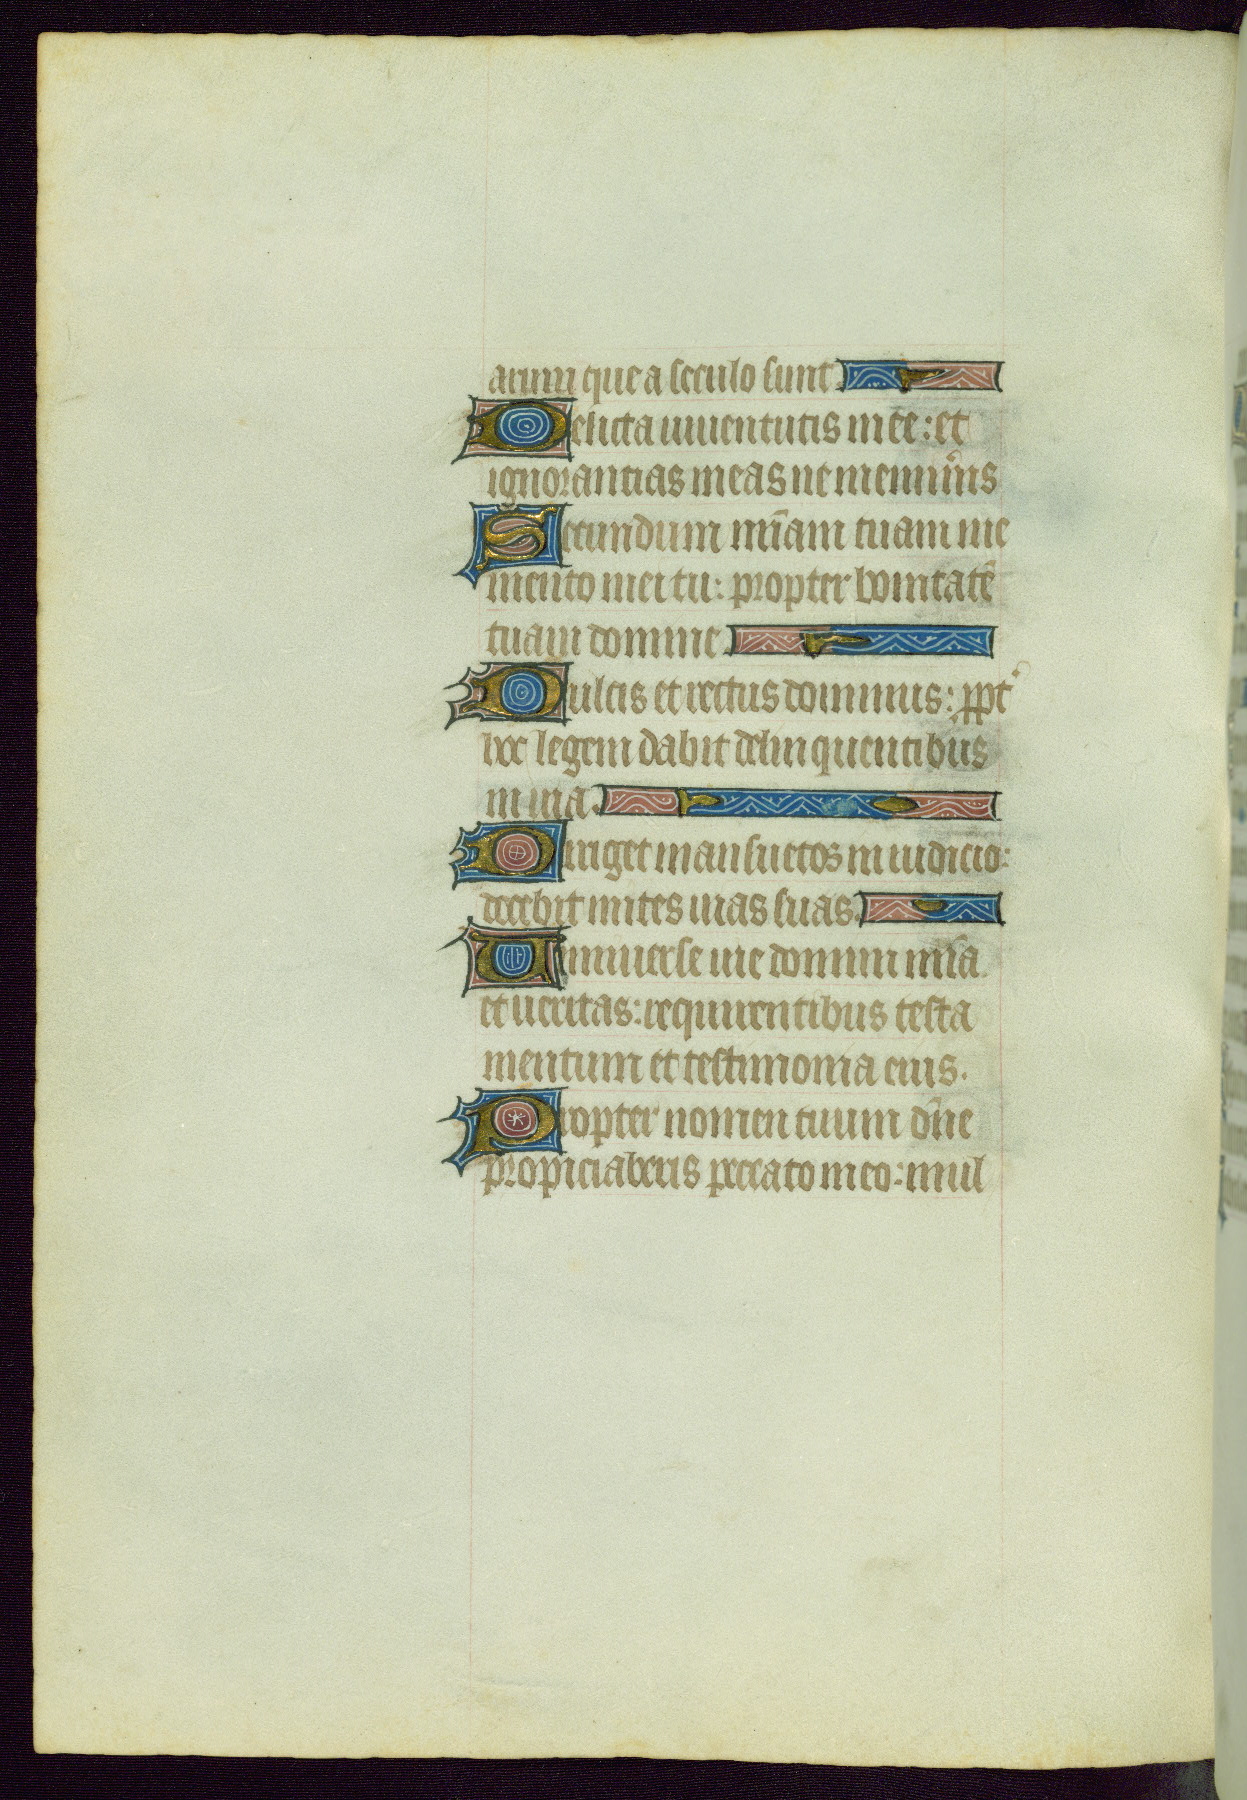 arum que a seculo sunt.
Delicta iuuentutis mee: et
ignorantias meas ne memin̄is
Secundum mīam tuam me
mento mei tu: propter bonitatē
tuam domine.
Dulcis et rectus dominus: ꝓpt̉
hoc legem dabit delinquentibus
in uia.
Diriget mansuetos in iudicio:
docebit mites uias suas.
Uniuerse uie domini mīa
et ueritas: requirentibus testa
mentum et testimonia eius.
Propter nomen tuum dn̄e
propiciaberis peccato meo: mul